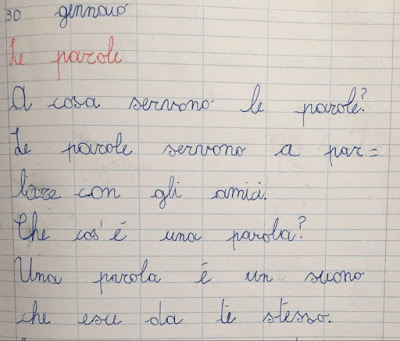 30 gennaio
Le parole
A cosa servono le parole?
Le parole servono a par=
lare con gli amici.
Che cos'è una parola?
Una parola è un suono
che esce da te stesso.